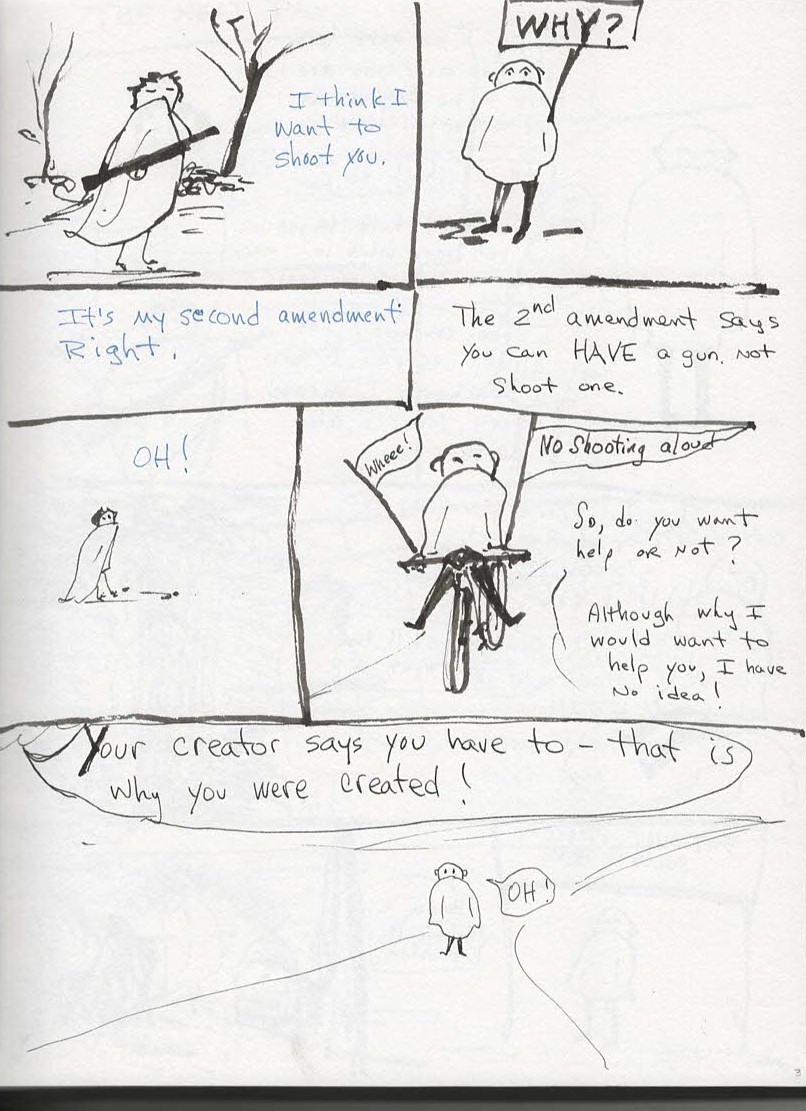 I think I
want to
shoot you.
WHY?
It's my second amendment
Right.
The 2nd amendment says
you can HAVE a gun. Not
shoot one.
OH!
Wheee!
No Shooting aloud
So, do you want
help or not?
Although why I
would want to
help you, I have
No idea!
Your creator says you have to - that is
why you were created!
OH!
3